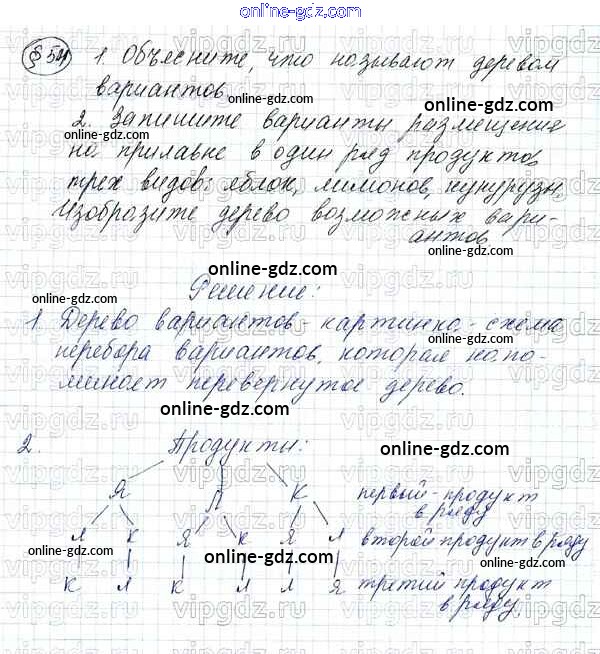 online-gdz.com
§ 54
1. Объясните, что называют деревом
вариантов.
online-gdz.com
2. Запишите варианты размещения
на прилавке в один ряд продуктов
online-gdz.com
трех видов: яблок, лимонов, кукурузы.
Изобразите дерево возможных вари-
антов
online-gdz.com
online-gdz.com
Решение:
online-gdz.com
1. Дерево вариантов - картинка - схема
перебора вариантов, которая напо-
минает перевернутое дерево.
online-gdz.com
online-gdz.com
2. Продукты:
online-gdz.com
Я Л К первый - продукт
в ряду
online-gdz.com
Л К Я К Я Л второй продукт в ряду
online-gdz.com
online-gdz.com
К Л К Я Л Я третий продукт
в ряду
online-gdz.com
online-gdz.com
vipgdz.ru